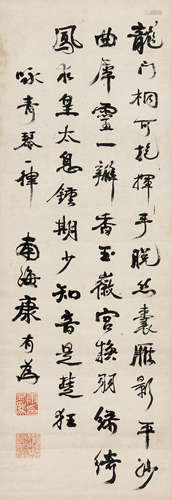 龍門桐可抱揮手脫然囊雁影平沙
曲犀靈一瓣香玉嶽宮換羽綠綺
鳳求皇太息鍾期少知音是楚狂
咏青琴一律 南海康有為